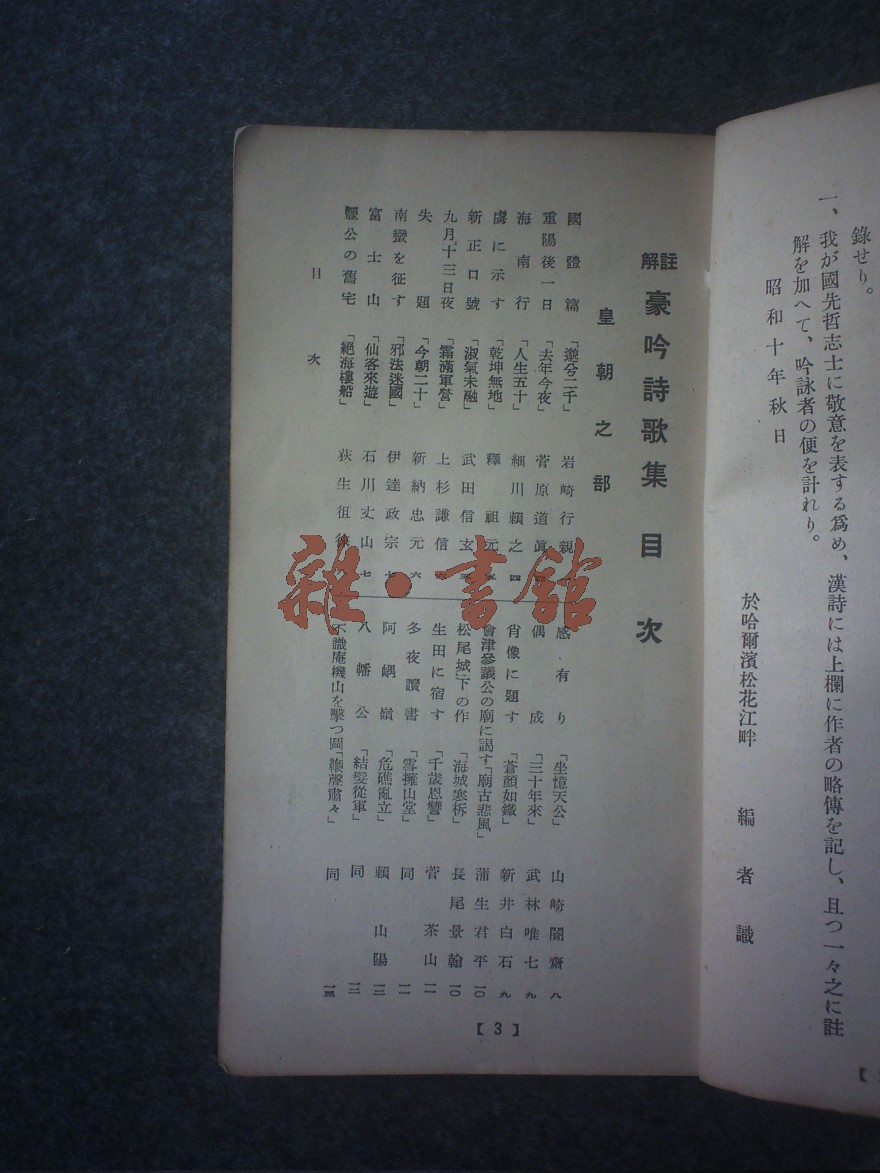 錄せり。
一、我が國先哲志士に敬意を表する爲め、漢詩には上欄に作者の略傳を記し、且つ一々之に註
解を加へて、吟詠者の便を計れり。
昭和十年秋日
於哈爾濱松花江畔 編者識
註解 豪吟詩歌集 目次
皇朝之部
國體篇 「邈兮二千」 岩崎行親
重陽後一日 「去年今夜」 菅原道眞
海南行 「人生五十」 細川賴之 四
虜に示す 「乾坤無地」 釋祖元
新正口號 「淑氣未融」 武田信玄
九月十三日夜 「霜滿軍營」 上杉謙信
失題 「今朝二十」 新納忠元 六
南蠻を征す 「邪法迷國」 伊達政宗
富士山 「仙客來遊」 石川丈山 七
豐公の舊宅 「絕海樓船」 荻生徂徠
感有り 「坐憶天公」 山崎闇齋 八
偶成 「三十年來」 武林唯七 九
肖像に題す 「蒼顏如鐵」 新井白石 九
會津參議公の廟に謁す 「廟古悲風」 蒲生君平 一〇
松尾城下の作 「海城寒柝」 長尾景翰 一〇
生田に宿す 「千歲恩讐」 菅茶山 一一
冬夜讀書 「雪擁山堂」 同 一一
阿嵎嶺 「危礁亂立」 賴山陽 一二
八幡公 「結髮從軍」 同 一二
不識庵機山を擊つ圖 「鞭聲肅々」 同 一三
目次
【3】
雜·書館